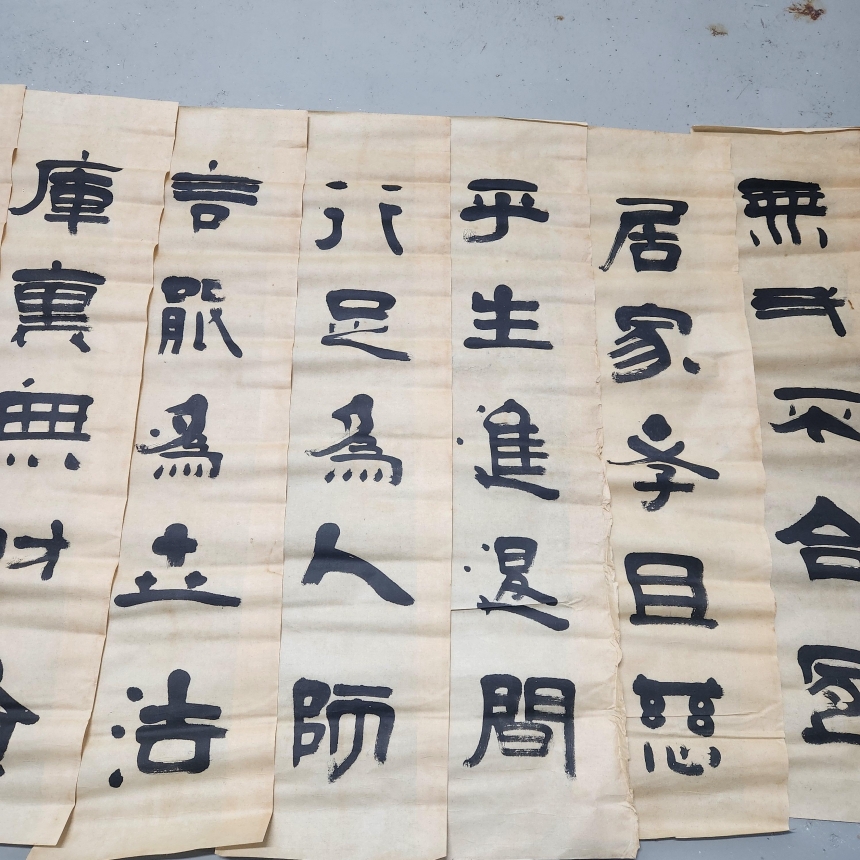 無不合
居家孝且慈
乎生進退間
行足為人師
言能為世法
庫裏無財